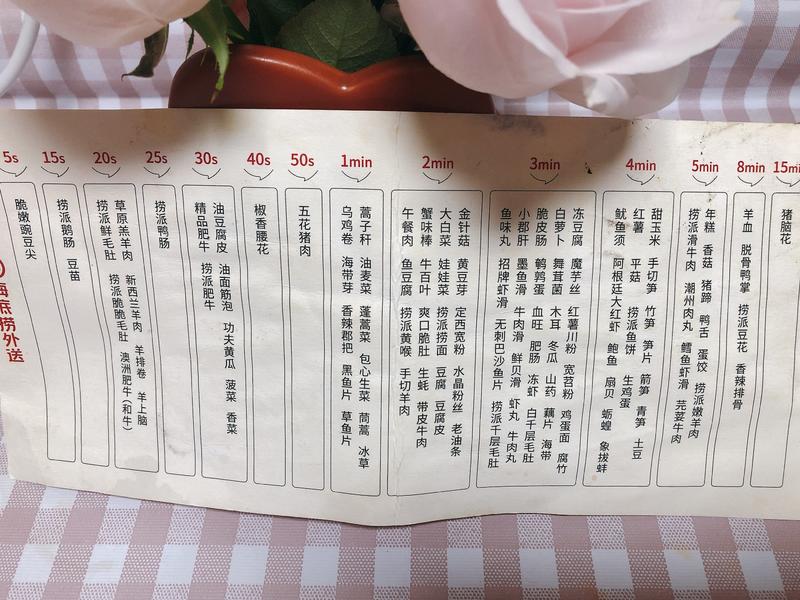 5s
脆嫩豌豆尖
15s
捞派鹅肠 豆苗
20s
草原羔羊肉 新西兰羊肉 羊排卷 羊上脑
捞派鲜毛肚 捞派脆脆毛肚 澳洲肥牛(和牛)
25s
捞派鸭肠
30s
油豆腐皮 油面筋泡 功夫黄瓜 菠菜 香菜
精品肥牛 捞派肥牛
40s
椒香腰花
50s
五花猪肉
1min
蒿子秆 油麦菜 蓬蒿菜 包心生菜 茼蒿 冰草
乌鸡卷 海带芽 香辣郡把 黑鱼片 草鱼片
2min
金针菇 黄豆芽 定西宽粉 水晶粉丝 老油条
大白菜 娃娃菜 捞派捞面 豆腐 豆腐皮
蟹味棒 牛百叶 爽口脆肚 生蚝 带皮牛肉
午餐肉 鱼豆腐 捞派黄喉 手切羊肉
3min
冻豆腐 魔芋丝 红薯川粉 宽苕粉 鸡蛋面 腐竹
白萝卜 舞茸菌 木耳 冬瓜 山药 藕片 海带
脆皮肠 鹌鹑蛋 血旺 肥肠 冻虾 白千层毛肚
小郡肝 墨鱼滑 牛肉滑 鲜贝滑 虾丸 牛肉丸
鱼味丸 招牌虾滑 无刺巴沙鱼片 捞派千层毛肚
4min
甜玉米 手切笋 竹笋 笋片 箭笋 青笋 土豆
红薯 平菇 捞派鱼饼 生鸡蛋
鱿鱼须 阿根廷大红虾 鲍鱼 扇贝 蛎蝗 象拔蚌
5min
年糕 香菇 猪蹄 鸭舌 蛋饺 捞派嫩羊肉
捞派滑牛肉 潮州肉丸 鳕鱼虾滑 芫荽牛肉
8min
羊血 脱骨鸭掌 捞派豆花 香辣排骨
15min
猪脑花
海底捞外送